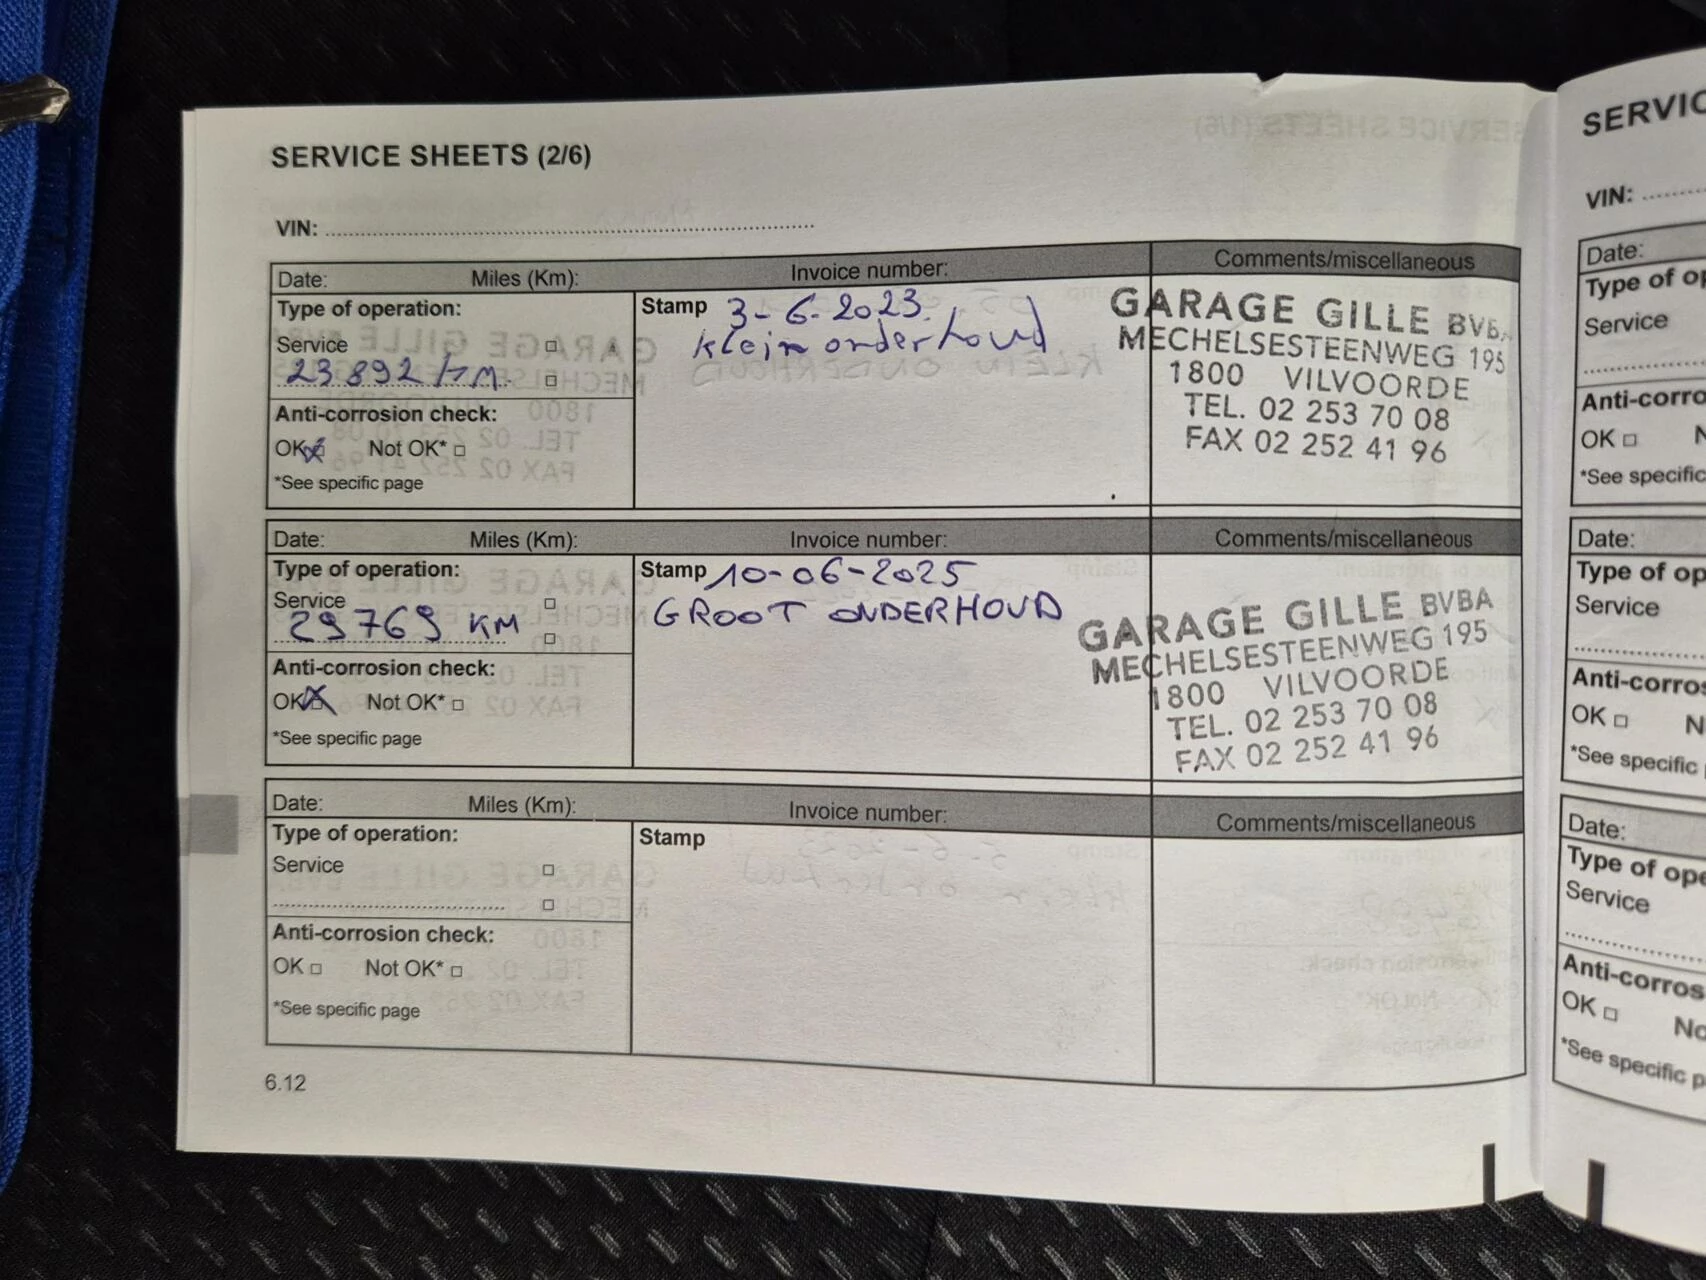 SERVICE SHEETS (2/6)
VIN:
Date: Miles (Km): Invoice number: Comments/miscellaneous
Type of operation:
Service
23892 km
Anti-corrosion check:
OK Not OK*
*See specific page
Stamp 3-6-2023
klein onderhoud
GARAGE GILLE BVBA
MECHELSESTEENWEG 195
1800 VILVOORDE
TEL. 02 253 70 08
FAX 02 252 41 96
Date: Miles (Km): Invoice number: Comments/miscellaneous
Type of operation:
Service
29769 KM
Anti-corrosion check:
OK Not OK*
*See specific page
Stamp 10-06-2025
GROOT ONDERHOUD
GARAGE GILLE BVBA
MECHELSESTEENWEG 195
1800 VILVOORDE
TEL. 02 253 70 08
FAX 02 252 41 96
Date: Miles (Km): Invoice number: Comments/miscellaneous
Type of operation:
Service
Anti-corrosion check:
OK Not OK*
*See specific page
Stamp
6.12
SERVIC
VIN:
Date:
Type of op
Service
Anti-corro
OK N
*See specific
Date:
Type of op
Service
Anti-corros
OK N
*See specific
Date:
Type of ope
Service
Anti-corros
OK No
*See specific p